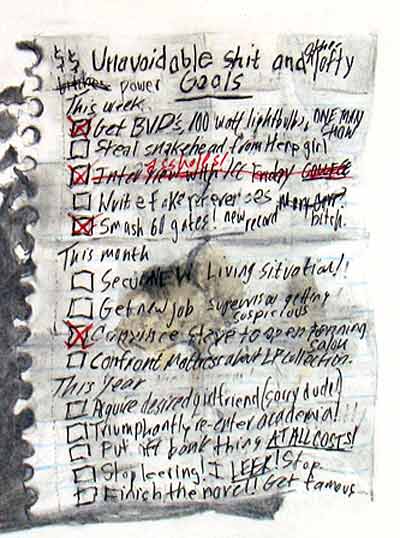 $$ Unavoidable shit and other lofty
power Goals
This week
Get BVD's, 100 watt lightbulbs, ONE MAN SHOW
Steal snakehead from Herp girl
assholes!
Interview
Write fake references
Smash 60 gates! new record bitch.
This month
Secure NEW Living situation!!
Get new job supervisor getting suspicious
Convince Steve to open tanning salon
Confront Mattress about LP collection.
This Year
Aquire desired girlfriend (sorry dude!)
Triumphantly re-enter academia!
Put off bank thing AT ALL COSTS!
Stop leering! I LEER! Stop.
Finish the novel! Get famous